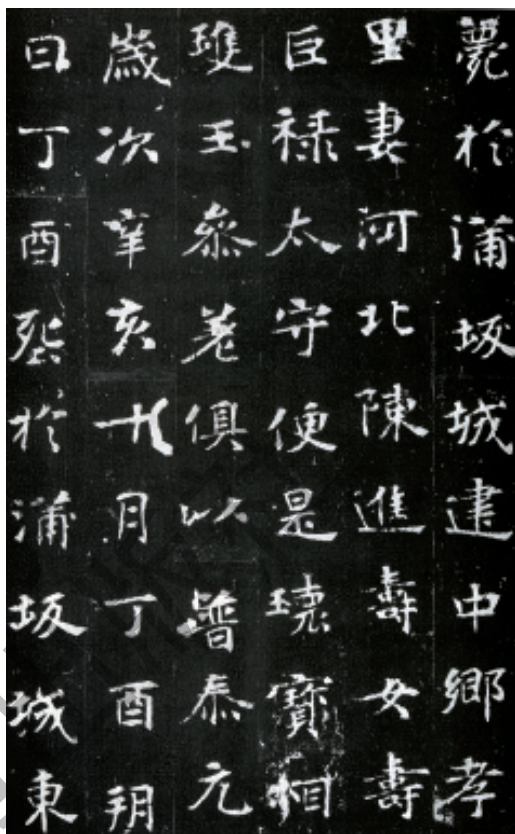 薨於蒲坂城建中鄉孝
里妻河北陳進壽女壽
巨禄太守便是瓌寶相
瓊玉參差俱以普泰元
歲次辛亥十月丁酉朔
日丁酉葬於蒲坂城東